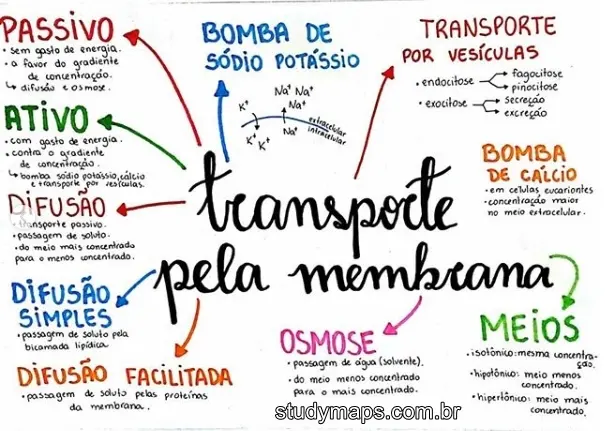 PASSIVO
• sem gasto de energia.
• a favor do gradiente
de concentração.
↳ difusão e osmose.
ATIVO
• com gasto de energia.
• contra o gradiente
de concentração.
↳ bomba sódio potássio, cálcio
e transporte por vesículas.
DIFUSÃO
• transporte passivo.
• passagem de soluto.
• do meio mais concentrado
para o menos concentrado.
DIFUSÃO
SIMPLES
• passagem de soluto pela
bicamada lipídica.
DIFUSÃO FACILITADA
• passagem de soluto pelas proteínas
da membrana.
BOMBA DE
SÓDIO POTÁSSIO
Na⁺ Na⁺
K⁺ Na⁺
extracelular
intracelular
K⁺ K⁺ Na⁺
TRANSPORTE
POR VESÍCULAS
• endocitose fagocitose
pinocitose
• exocitose secreção
excreção
BOMBA
DE CÁLCIO
• em células eucariontes
• concentração maior
no meio extracelular.
transporte
pela membrana
OSMOSE
• passagem de água (solvente).
• do meio menos concentrado
para o mais concentrado.
MEIOS
• isotônico: mesma concentra-
ção.
• hipotônico: meio menos
concentrado.
• hipertônico: meio mais
concentrado.
studymaps.com.br